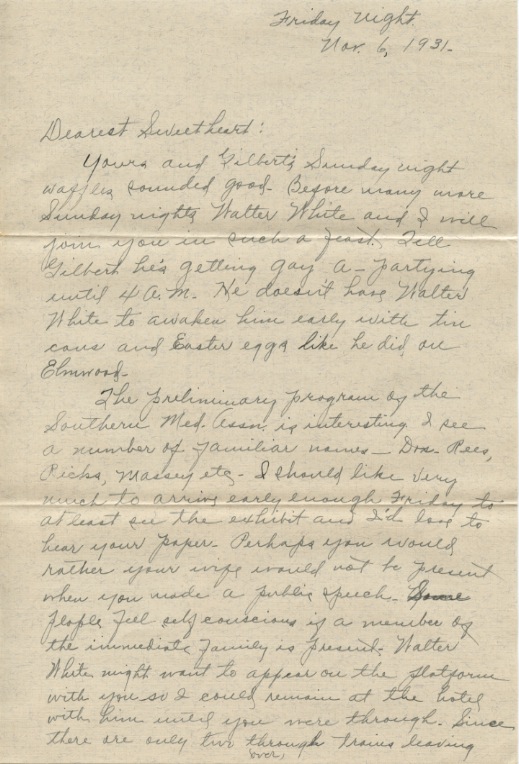 Friday night.
Nov. 6, 1931.
Dearest Sweetheart:
Yours and Gilbert's Sunday night
waffles sounded good. Before many more
Sunday nights Walter White and I will
join you in such a feast. Tell
Gilbert he's getting gay a-partying
until 4 A.M. He doesn't have Walter
White to awaken him early with tin
cans and Easter eggs like he did on
Elmwood.
The preliminary program of the
Southern Med. Assn. is interesting. I see
a number of familiar names - Drs. Rees,
Ricks, Massey etc. I should like very
much to arrive early enough Friday to
at least see the exhibit and I'd love to
hear your paper. Perhaps you would
rather your wife would not be present
when you made a public speech. Some
people feel self conscious if a member of
the immediate family is present. Walter
White might want to appear on the platform
with you so I could remain at the hotel
with him until you were through. Since
there are only two through trains leaving
over,